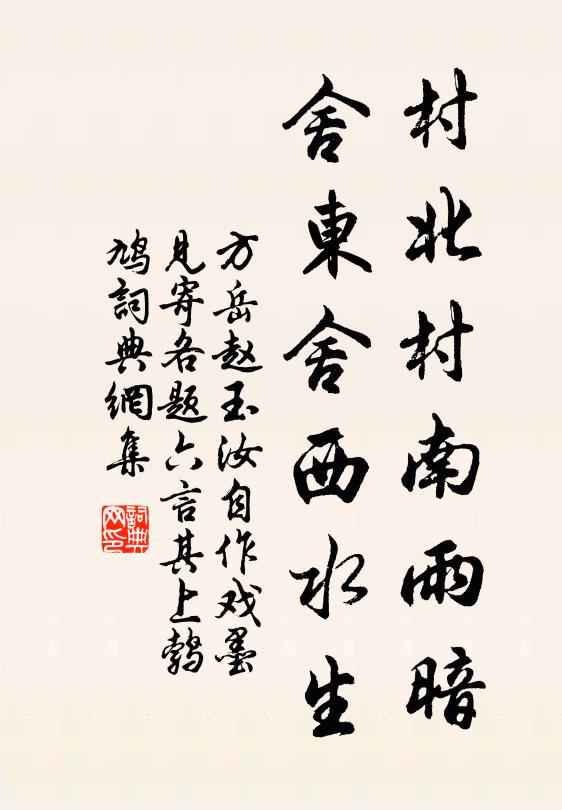 村北村南雨暗
舍東舍西水生
方岳赵玉汝自作戏墨
见寄各题六言其上鹁
鸠詞典網集
詞典网印